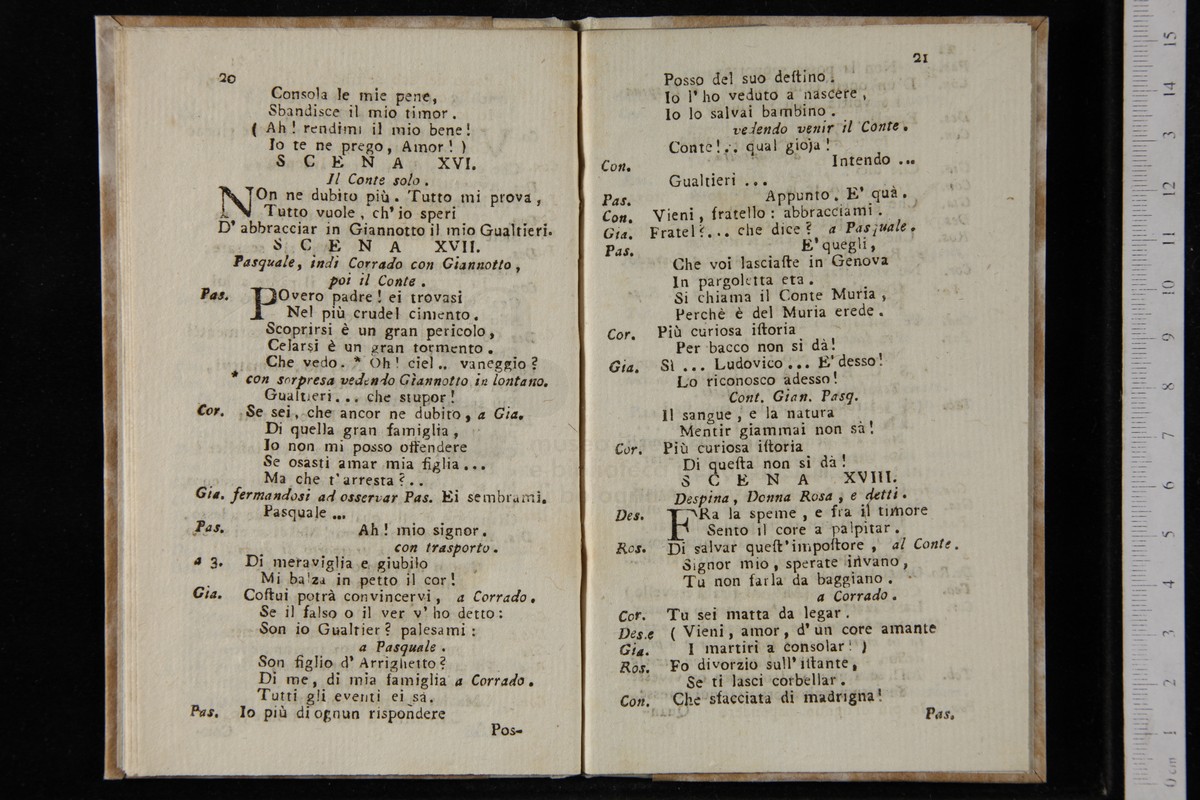 20
Consola le mie pene,
Sbandisce il mio timor.
( Ah! rendimi il mio bene!
Io te ne prego, Amor! )
SCENA XVI.
Il Conte solo.
NOn ne dubito più. Tutto mi prova,
Tutto vuole, ch'io speri
D'abbracciar in Giannotto il mio Gualtieri.
SCENA XVII.
Pasquale, indi Corrado con Giannotto,
poi il Conte.
Pas. POvero padre! ei trovasi
Nel più crudel cimento.
Scoprirsi è un gran pericolo,
Celarsi è un gran tormento.
Che vedo. * Oh! ciel.. vaneggio?
* con sorpresa vedendo Giannotto in lontano.
Gualtieri... che stupor!
Cor. Se sei, che ancor ne dubito, a Gia.
Di quella gran famiglia,
Io non mi posso offendere
Se osasti amar mia figlia...
Ma che t'arresta?..
Gia. fermandosi ad osservar Pas. Ei sembrami.
Pasquale...
Pas. Ah! mio signor.
con trasporto.
a 3. Di meraviglia e giubilo
Mi balza in petto il cor!
Gia. Coſtui potrà convincervi, a Corrado.
Se il falso o il ver v'ho detto:
Son io Gualtier? palesami:
a Pasquale.
Son figlio d'Arrighetto?
Di me, di mia famiglia a Corrado.
Tutti gli eventi ei sa.
Pas. Io più di ognun rispondere
Pos-
21
Posso del suo deſtino.
Io l'ho veduto a nascere,
Io lo salvai bambino.
vedendo venir il Conte.
Conte!.. qual gioja!
Con. Intendo...
Gualtieri...
Pas. Appunto. E' quà.
Con. Vieni, fratello: abbracciami.
Gia. Fratel?... che dice? a Pasquale.
Pas. E' quegli,
Che voi lasciaſte in Genova
In pargoletta eta.
Si chiama il Conte Muria,
Perchè è del Muria erede.
Cor. Più curiosa iſtoria
Per bacco non si dà!
Gia. Sì... Ludovico... E' desso!
Lo riconosco adesso!
Cont. Gian. Pasq.
Il sangue, e la natura
Mentir giammai non sà!
Cor. Più curiosa iſtoria
Di queſta non si dà!
SCENA XVIII.
Despina, Donna Rosa, e detti.
Des. FRa la speme, e fra il timore
Sento il core a palpitar.
Ros. Di salvar queſt'impoſtore, al Conte.
Signor mio, sperate invano,
Tu non farla da baggiano.
a Corrado.
Cor. Tu sei matta da legar.
Des.e ( Vieni, amor, d'un core amante
Gia. I martirì a consolar! )
Ros. Fo divorzio sull'iſtante,
Se ti lasci corbellar.
Con. Che sfacciata di madrigna!
Pas.